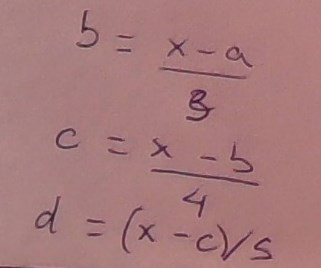 b = x - a / 3
c = x - b / 4
d = (x - c)/5